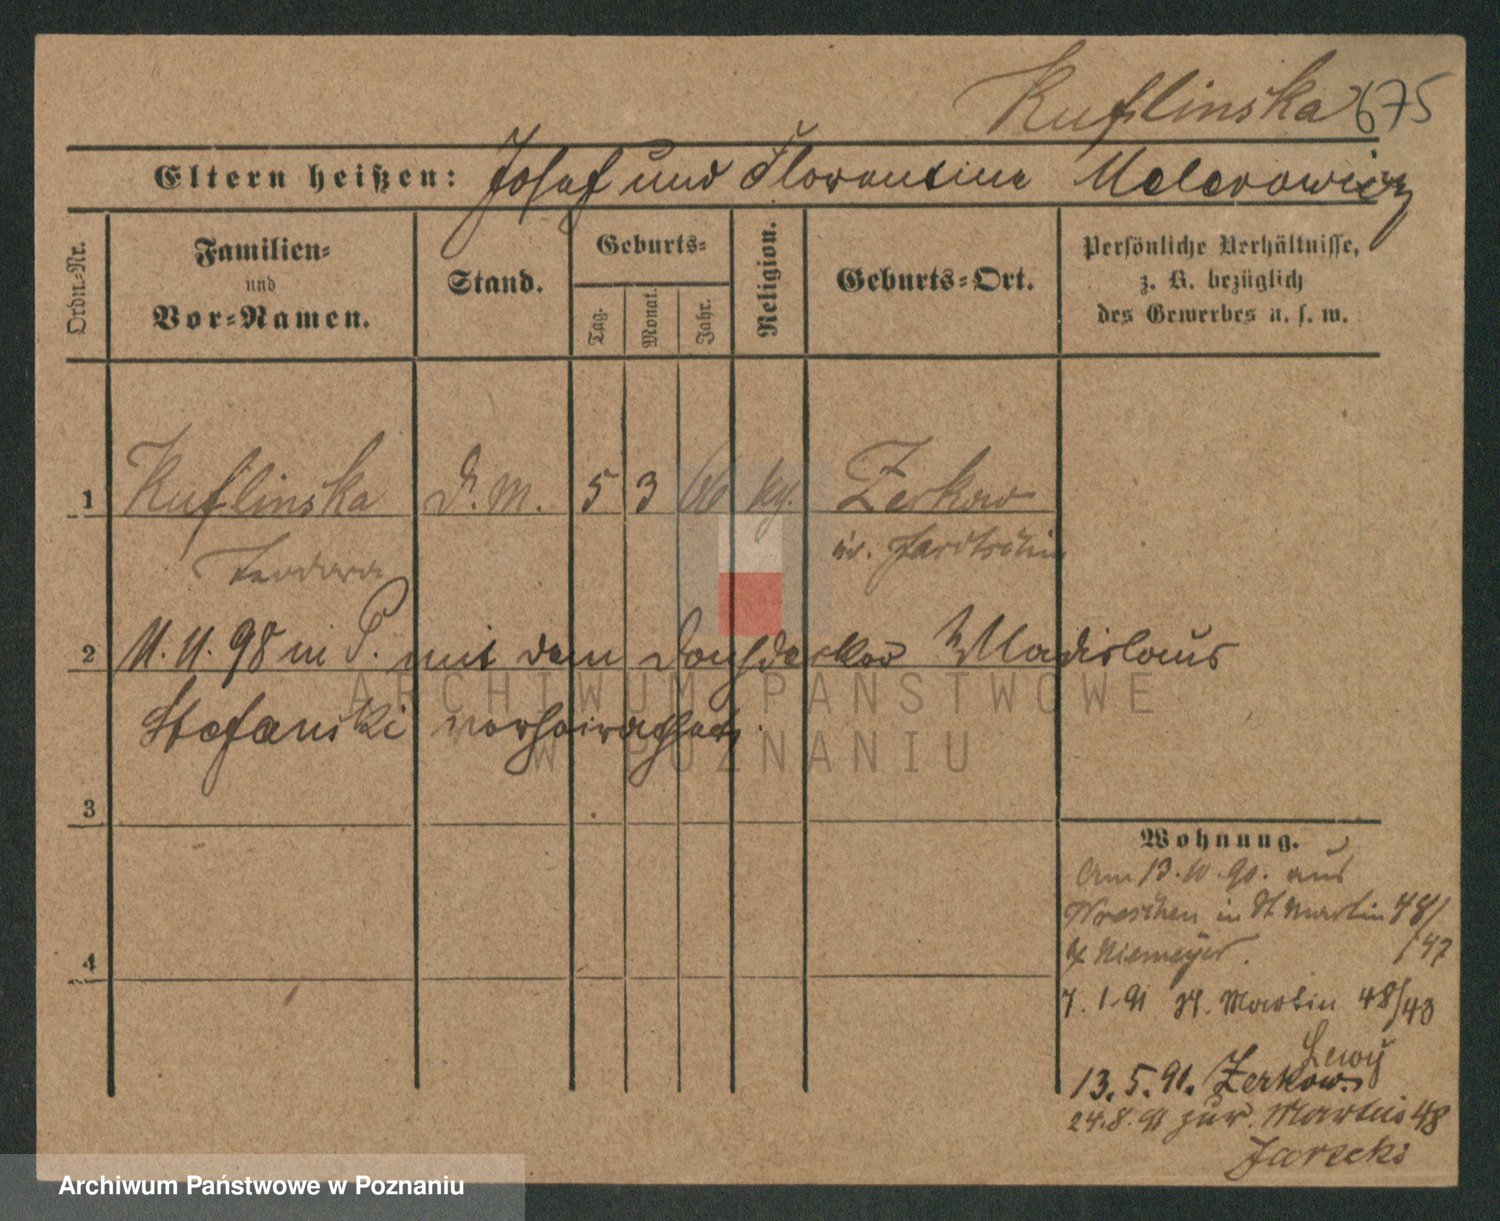 Kuflinska 675
Eltern heißen: Josef und Florentine
Ordn.-Nr.
Familien-
und
Vor-Namen.
Stand.
Geburts-
Tag.
Monat.
Jahr.
Religion.
Geburts-Ort.
Persönliche Verhältnisse,
z. B. bezüglich
des Gewerbes u. s. w.
1 Kuflinska D. M. 5 3 66 kg. Zerkow
Teodora
2 98 in P. mit dem Dachdecker Wladislaus
Stefanski verheirathet.
3
4
Wohnung.
Am 13.10.90. aus
Wreschen in St Martin 48/
/47
Niemeyer.
7.1.91 St. Martin 48/43
Lewy
13.5.91. Zerkow
24.8.91 zur. Martin 48
Jarecki
ARCHIWUM PAŃSTWOWE
W POZNANIU
Archiwum Państwowe w Poznaniu